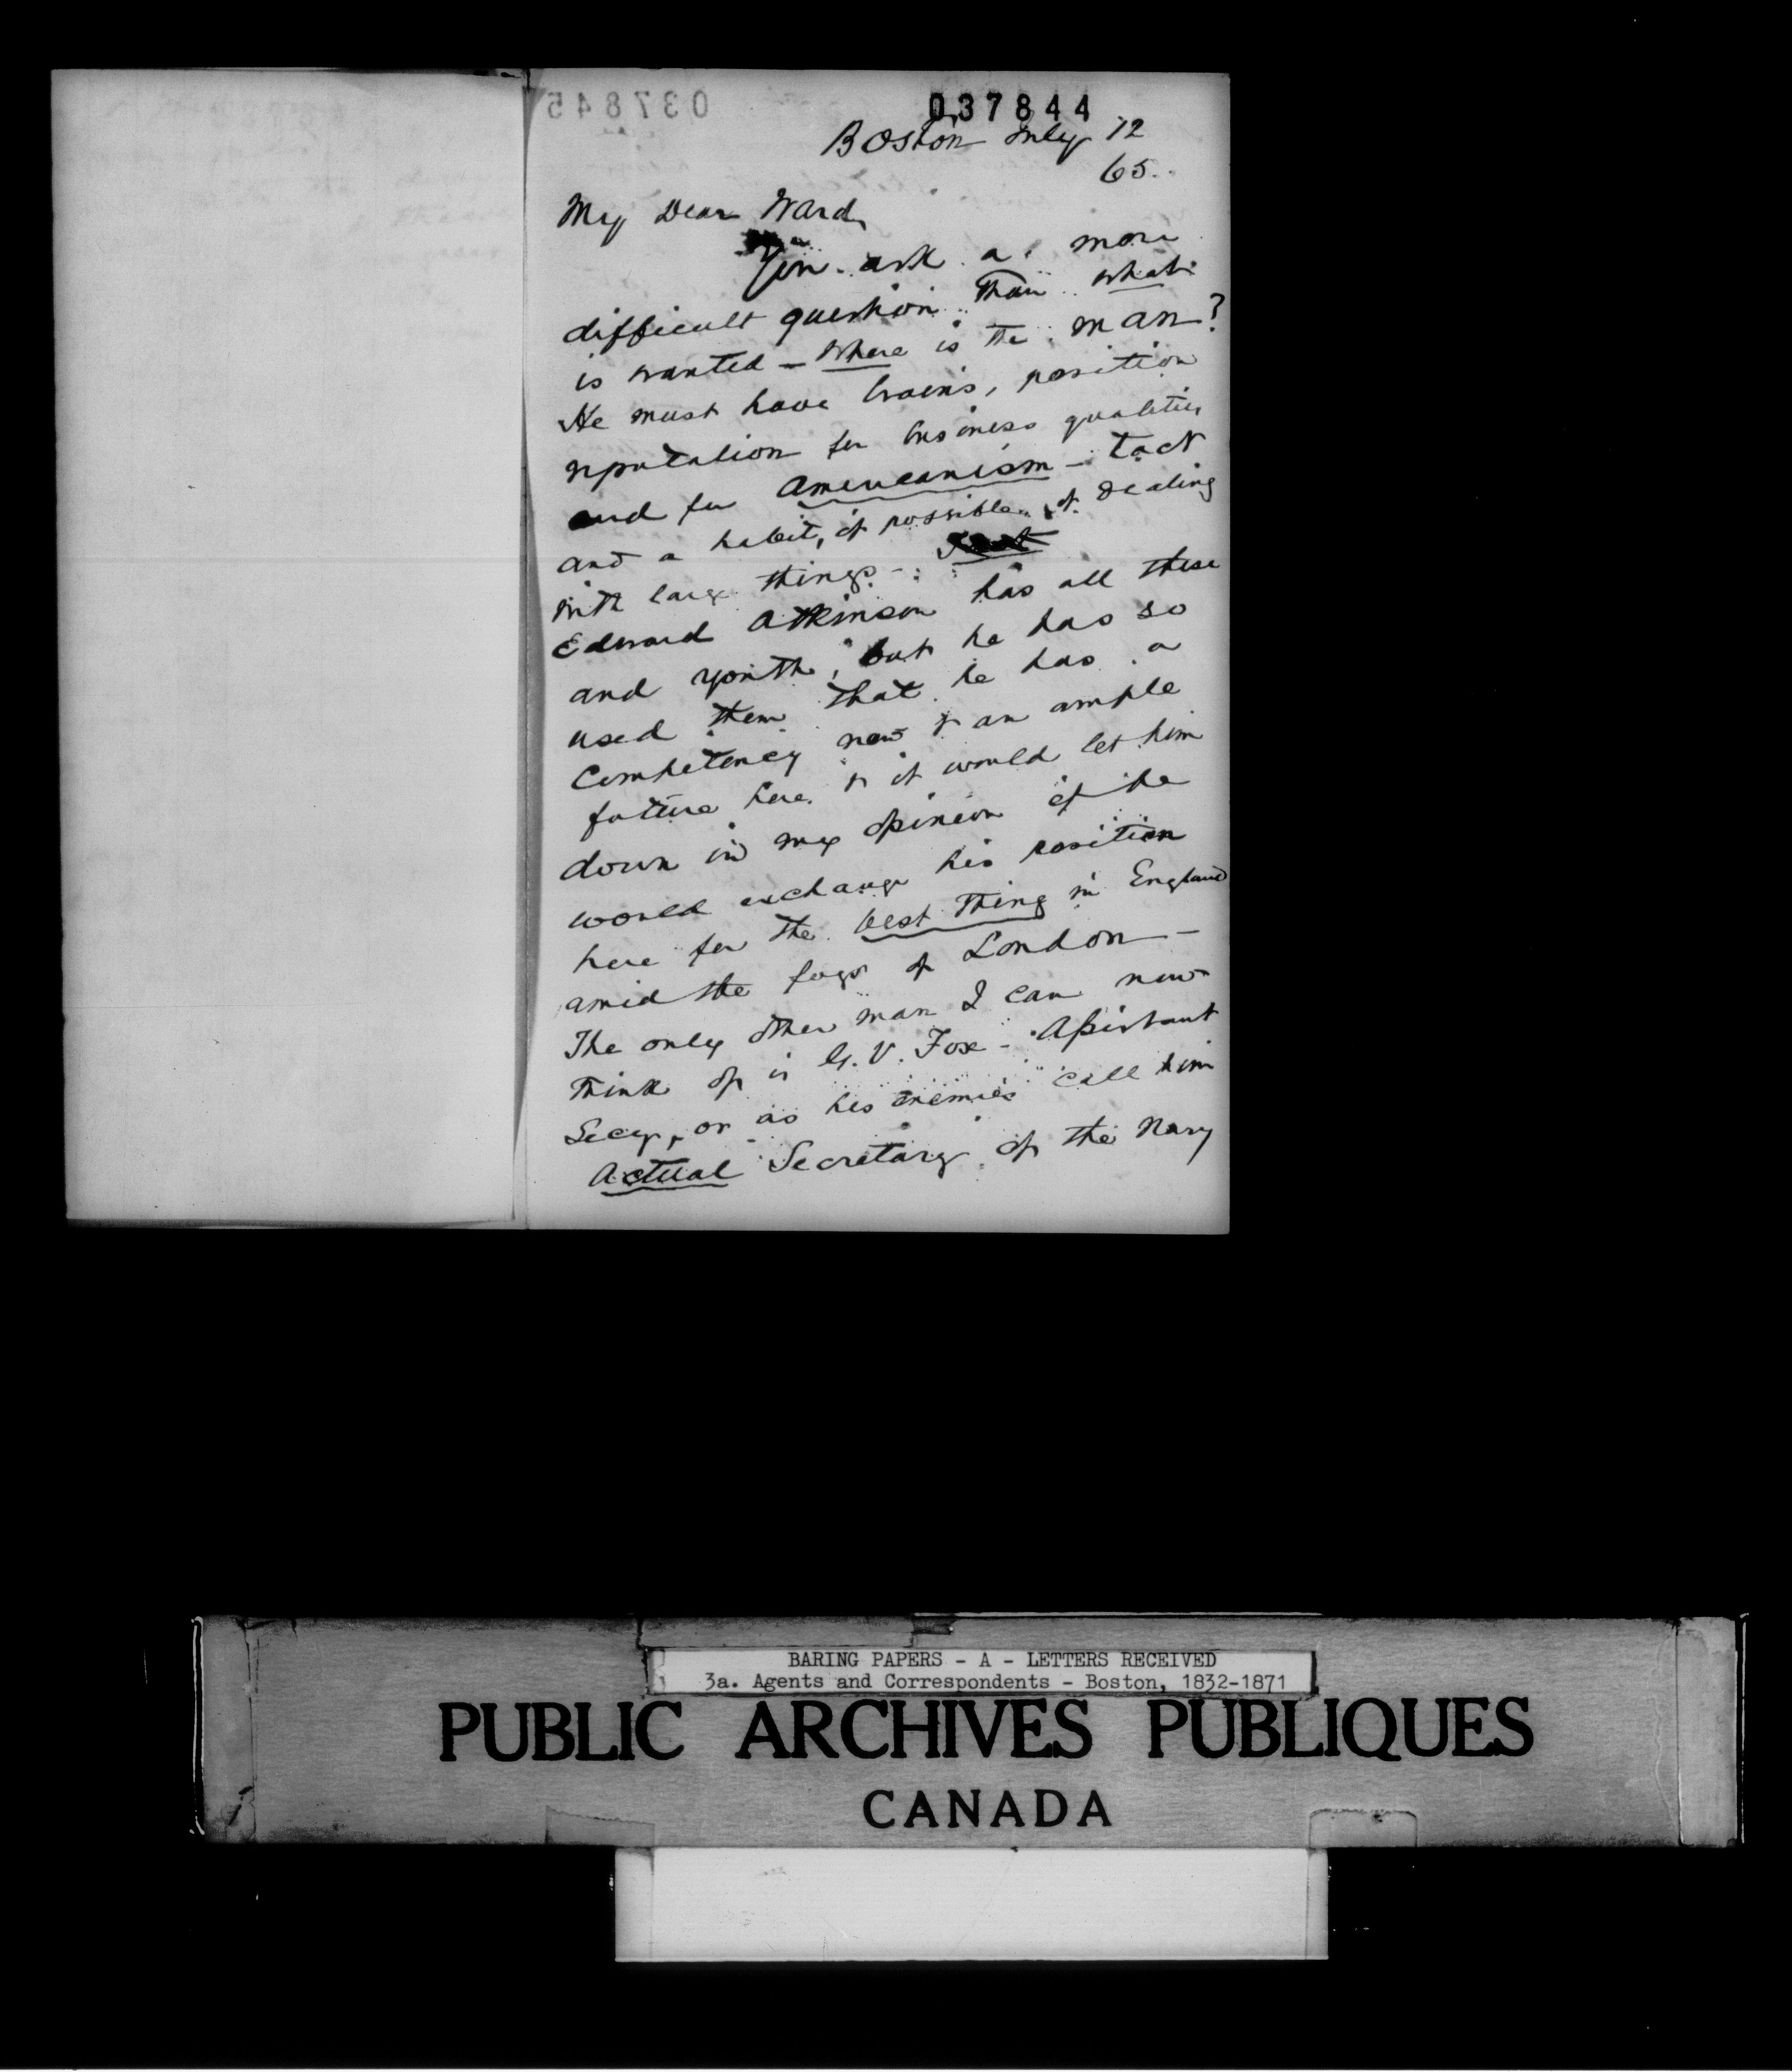 037844
Boston July 12
65.
My Dear Ward,
You ask a more
difficult question than what
is wanted - Where is the man?
He must have brains, position
reputation for business qualities
and for Americanism - tact
and a habit, if possible, of dealing
with large things -
Edward Atkinson has all these
and youth, but he has so
used them that he has a
Competency now & an ample
future here & it would let him
down in my opinion if he
would exchange his position
here for the best thing in England
amid the fogs of London -
The only other man I can now
think of is G. V. Fox - Assistant
Secy, or as his enemies call him
Actual Secretary of the Navy
BARING PAPERS - A - LETTERS RECEIVED
3a. Agents and Correspondents - Boston, 1832-1871
PUBLIC ARCHIVES PUBLIQUES
CANADA